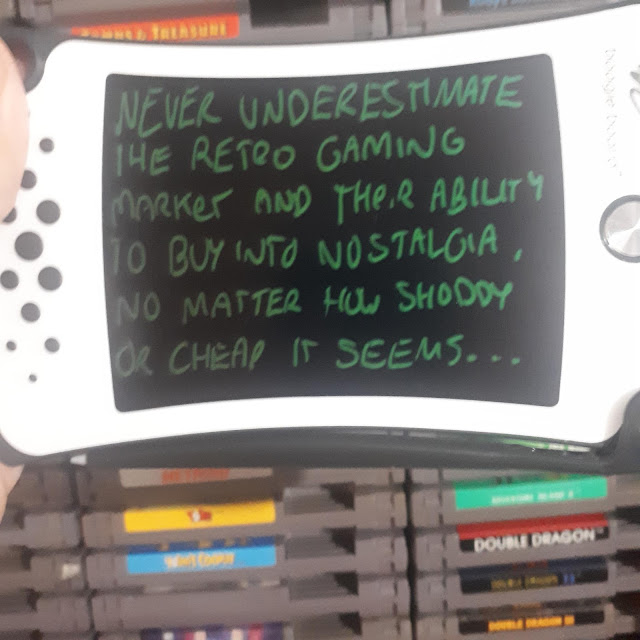 & TREASURE
NEVER UNDERESTIMATE
THE RETRO GAMING
MARKET AND THEIR ABILITY
TO BUY INTO NOSTALGIA.
NO MATTER HOW SHODDY
OR CHEAP IT SEEMS...
boogie board
DOUBLE DRAGON
DOUBLE DRAGON II
DOUBLE DRAGON III